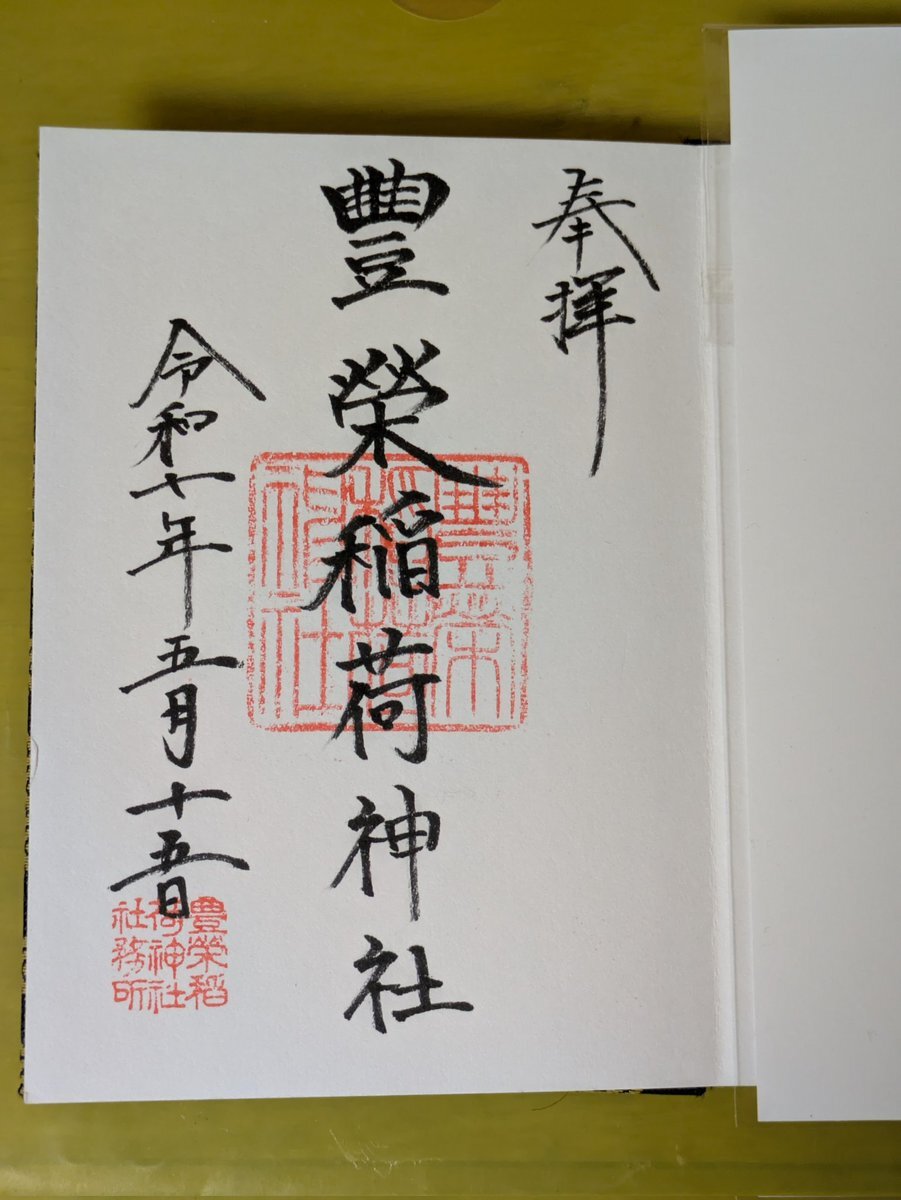 奉拝
豊榮稲荷神社
豊榮
稲荷
神社
令和七年五月十五日
豊榮稲
荷神社
社務所